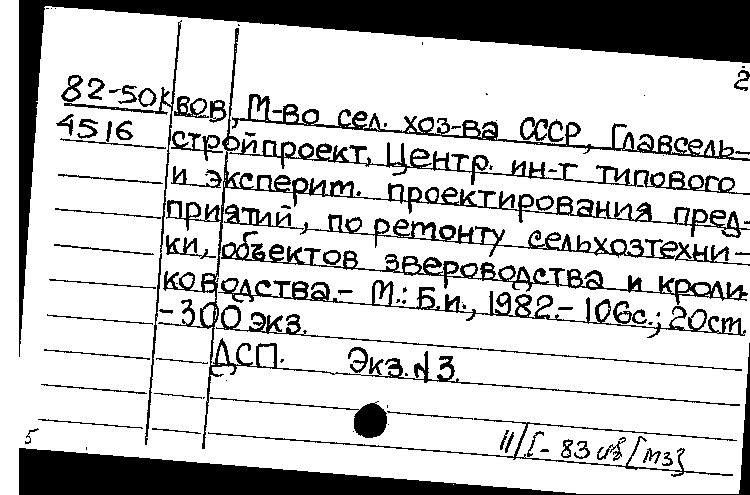 2
82-50К вов, М-во сел. хоз-ва СССР, Главсель-
4516 стройпроект, Центр. ин-т типового
и эксперит. проектирования пред-
приятий, по ремонту сельхозтехни-
ки, объектов звероводства и кроли-
ководства.- М.: Б.и., 1982.- 106с.; 20см.
-300 экз.
ДСП. Экз. №3.
11/I - 83 [МЗ]
5